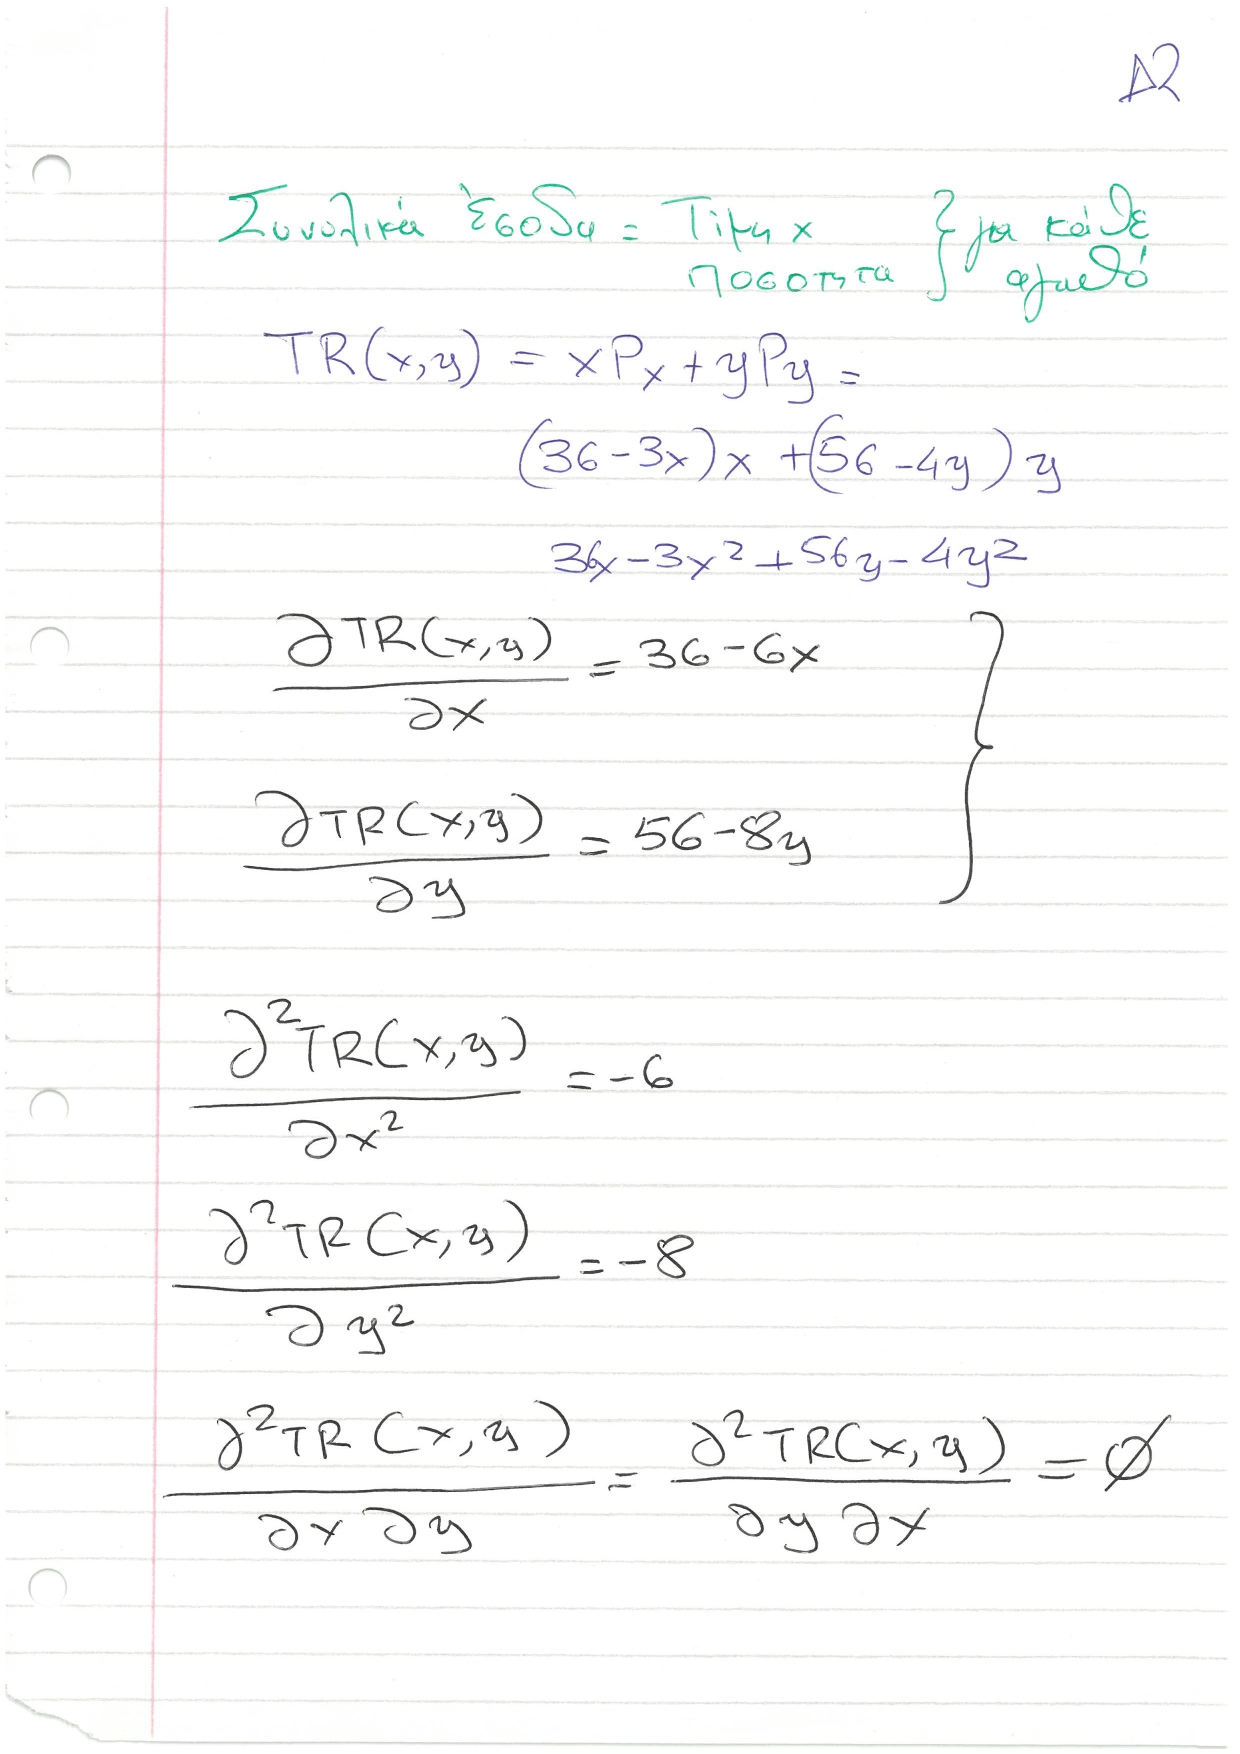 Δ2
Συνολικά Έσοδα = Τιμη x } για κάθε
ποσοτητα αγαθό
TR(x,y) = xPx + yPy =
(36-3x)x + (56-4y)y
36x-3x²+56y-4y²
∂TR(x,y)/∂x = 36-6x }
∂TR(x,y)/∂y = 56-8y
∂²TR(x,y)/∂x² = -6
∂²TR(x,y)/∂y² = -8
∂²TR(x,y)/∂x∂y = ∂²TR(x,y)/∂y∂x = ∅